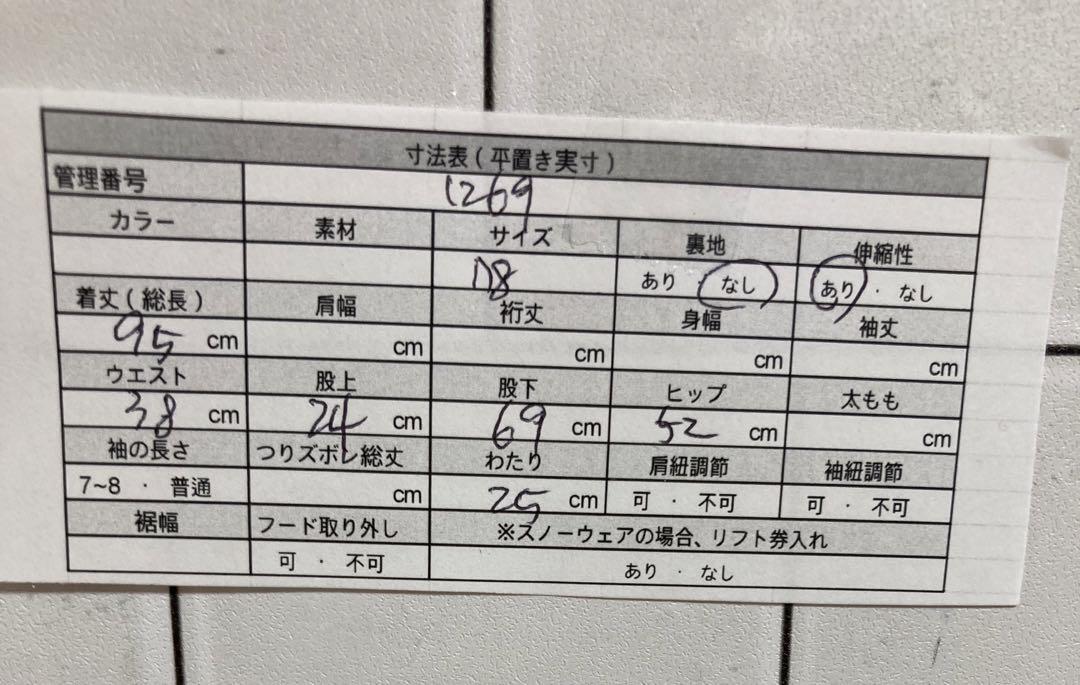 寸法表(平置き実寸)
管理番号 1269
カラー 素材 サイズ 裏地 伸縮性
あり・なし あり・なし
着丈(総長) 肩幅 裄丈 身幅 袖丈
95 cm cm cm cm cm
ウエスト 股上 股下 ヒップ 太もも
38 cm 24 cm 69 cm 52 cm cm
袖の長さ つりズボン総丈 わたり 肩紐調節 袖紐調節
7~8・普通 cm 25 cm 可・不可 可・不可
裾幅 フード取り外し ※スノーウェアの場合、リフト券入れ
可・不可 あり・なし